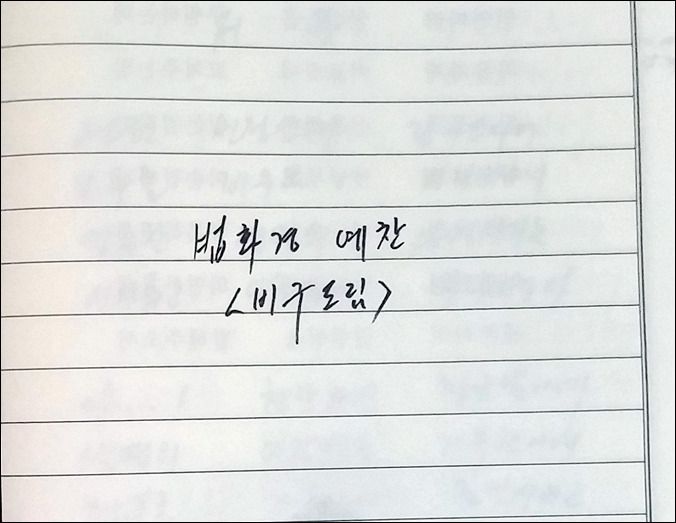 법화경 예찬
<비구도림>